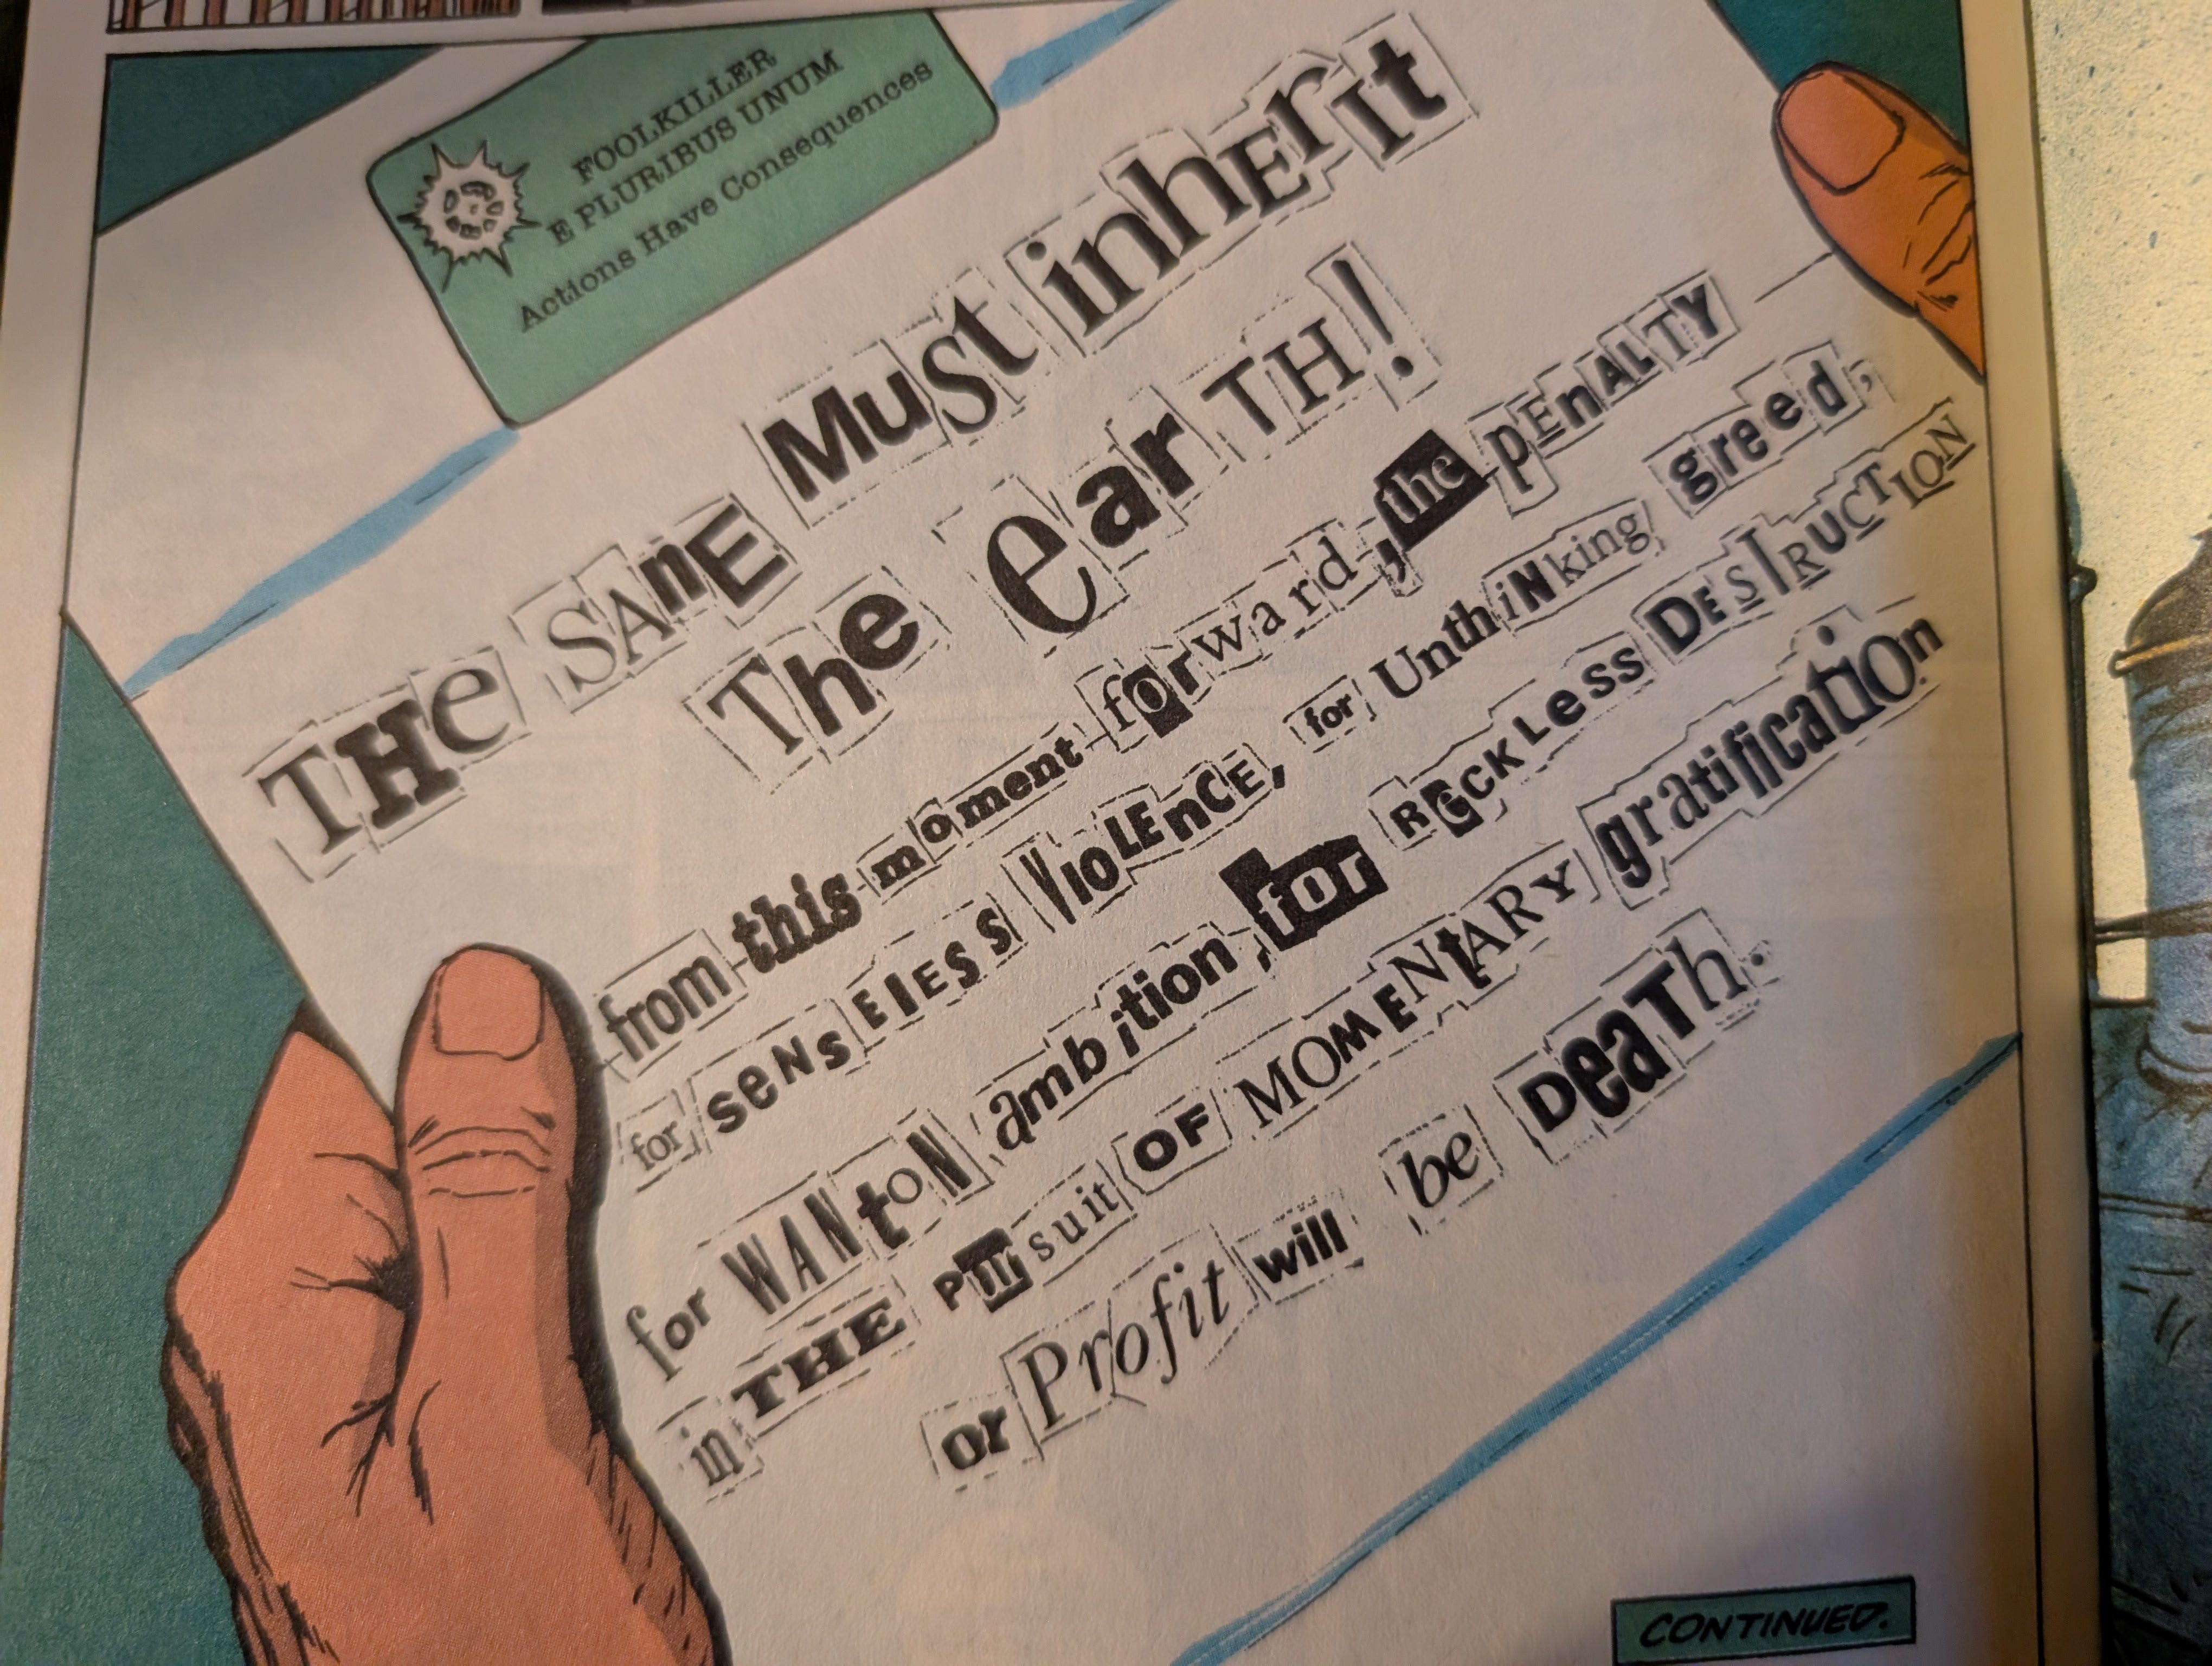 FOOLKILLER
E PLURIBUS UNUM
Actions Have Consequences
THe SAnE Must inhErit
The earTH!
from this moment forward, the pEnALTY
for seNsElEss VioLEnCE, for UnthiNking greed,
for WANtoN ambition, for RecKLess DEsTRUCTION
in THE Pursuit OF MOMENtARY gratification
or Profit will be DeaTh.
CONTINUED.